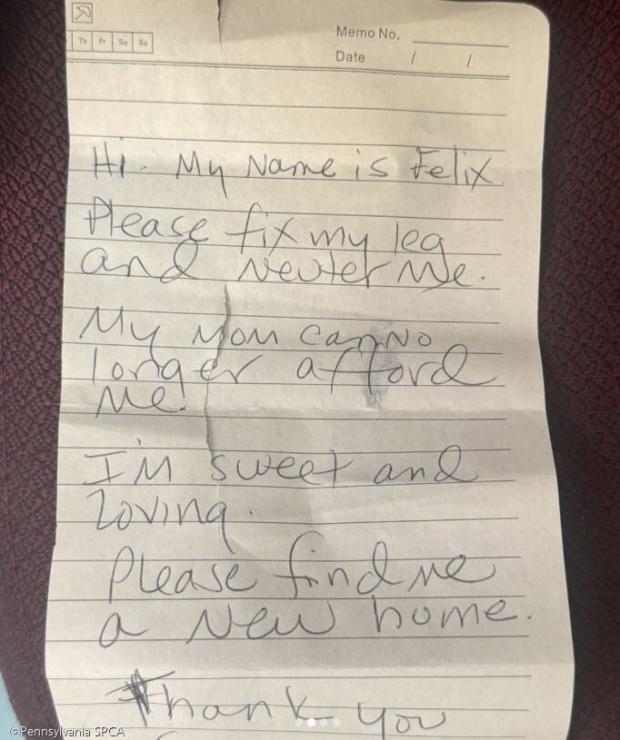 Th Fr Sa Su
Memo No.
Date / /
Hi. My Name is Felix
Please fix my leg
and Neuter Me.
My Mom can No
longer afford
Me.
I'M sweet and
Loving.
Please find me
a New home.
Thank you
©Pennsylvania SPCA